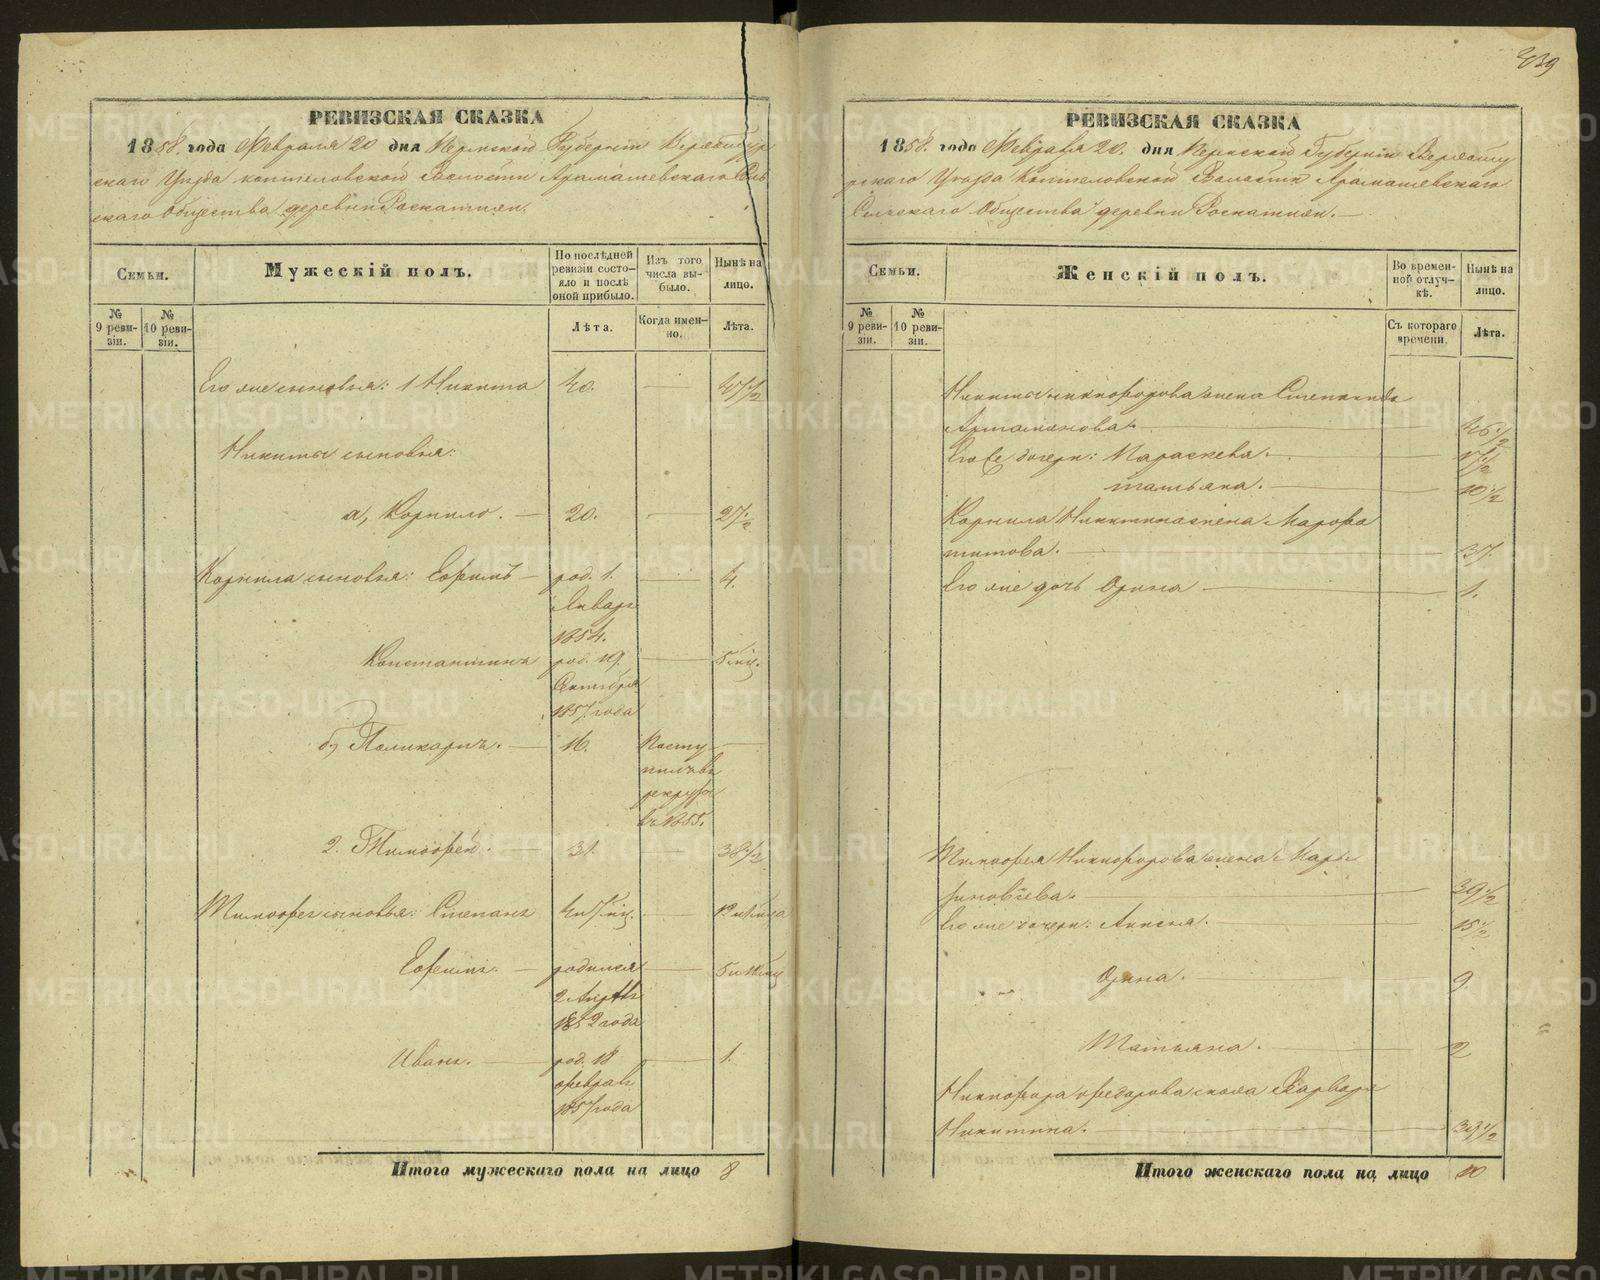 439
РЕВИЗСКАЯ СКАЗКА
1858 года Февраля 20 дня Пермской Губернiи Верхотур
скаго Уезда коптеловской Волости Арамашевскаго Сель
скаго Общества деревни Роскатихи.
Семьи.
Мужескiй полъ.
По последней
ревизiи состо-
яло и после
оной прибыло.
Изъ того
числа вы-
было.
Ныне на
лицо.
№
9 реви-
зiи.
№
10 реви-
зiи.
Лета.
Когда имен-
но.
Лета.
Его же сыновья: 1 Никита 40. 47 1/2
Никиты сыновья:
а, Корнило. 20. 27 1/2
Корнила сыновья: Ефимъ род. 1. 4.
Январ
1854.
Константинъ род. 19. 5 мц.
Октября
1857 года
б, Поликарпъ. 16. Посту
пилъ въ
рекрут
въ 1855.
2. Тимофей. 31. 38 1/2
Тимофея сыновья: Степанъ 4 и 7 мц.
Ефимъ. родился
2 Апреля
1852 года
Иванъ. род. 18 1.
феврал
1857 года
Итого мужескаго пола на лицо 8
РЕВИЗСКАЯ СКАЗКА
1858 года Февраля 20. дня Пермской Губернiи Верхоту
рскаго Уезда Коптеловской Волости Арамашевскаго
Сельскаго Общества деревни Роскатихи.
Семьи.
Женскiй полъ.
Во времен-
ной отлуч-
ке.
Ныне на
лицо.
№
9 реви-
зiи.
№
10 реви-
зiи.
Съ котораго
времени.
Лета.
Никиты никифорова жена Степанида
Артамонова. 46 1/2
Его же дочери: Параскева. 17 1/2
татьяна. 10 1/2
Корнила Никитина жена Марфа
титова. 37.
Его же дочь Орина 1.
Тимофея Никифорова жена Мар
39 1/2
Его же дочери: Анисья. 15 1/2
Орина. 9.
Татьяна. 2
Никифора федорова Варвара
Никитина.
Итого женскаго пола на лицо 10
METRIKI.GASO-URAL.RU